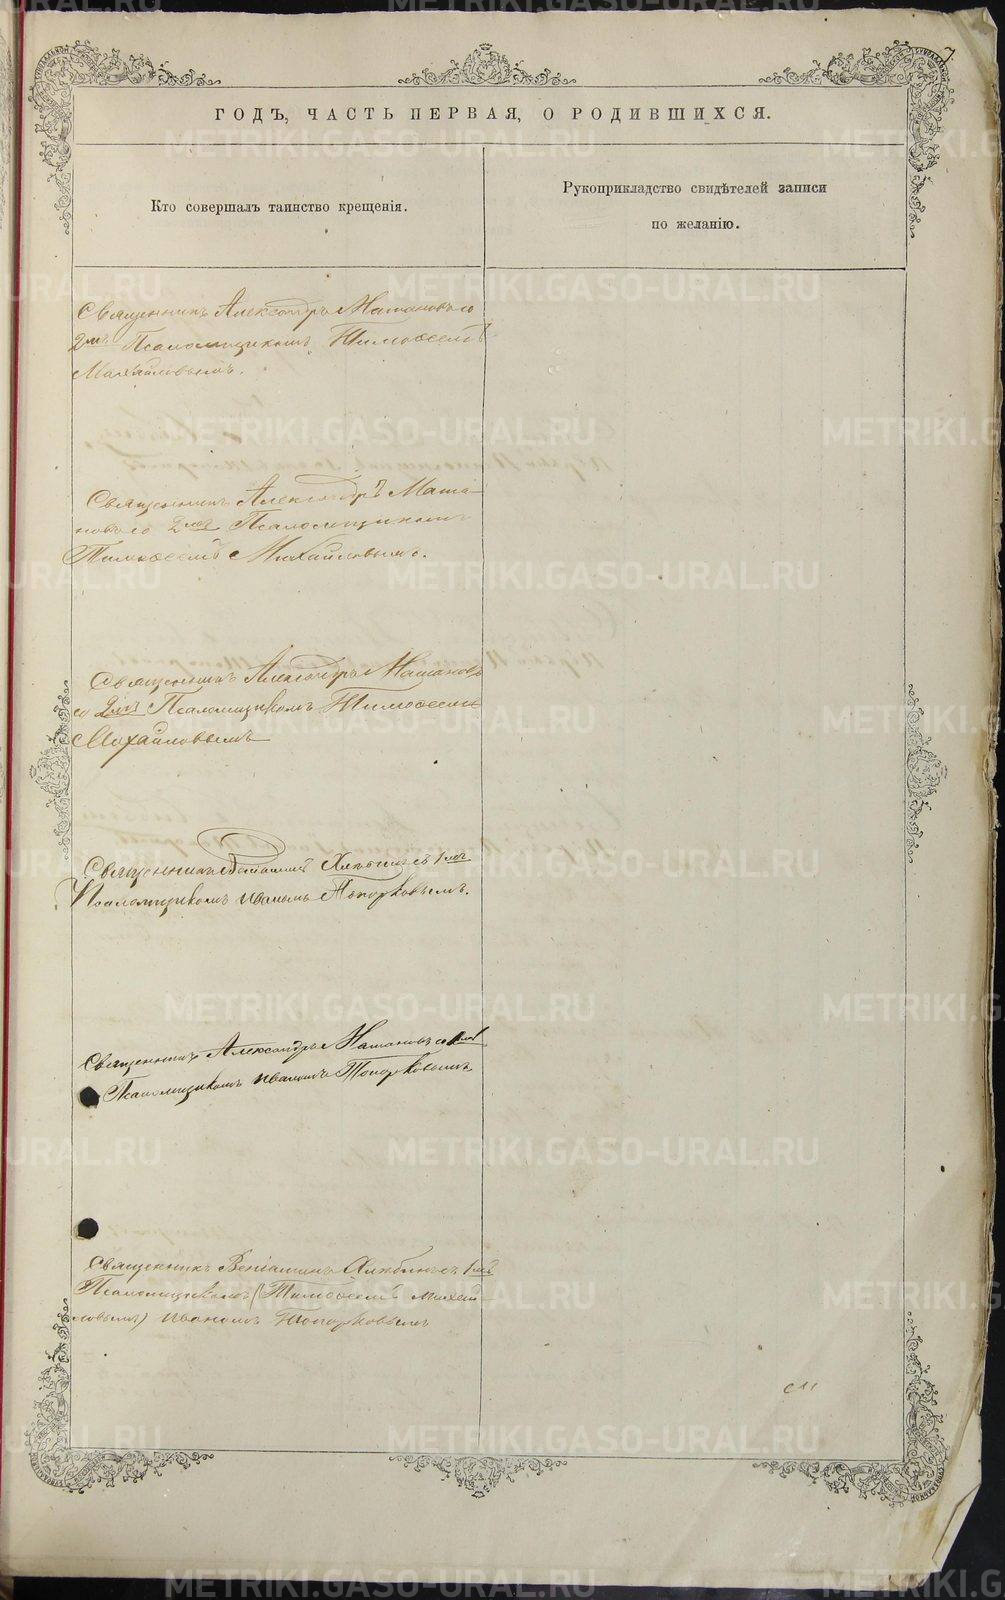 7.
ГОДЪ, ЧАСТЬ ПЕРВАЯ, О РОДИВШИХСЯ.
Кто совершалъ таинство крещенія.
Рукоприкладство свидѣтелей записи
по желанію.
Священникъ Александръ со
2мъ Псаломщикомъ Тимоѳеемъ
Михайловымъ.
Священникъ Александръ
со 2мъ Псаломщикомъ
Тимоѳеемъ Михайловымъ.
Священникъ Александръ
со 2мъ Псаломщикомъ Тимоѳеемъ
Михайловымъ
Священникъ съ 1мъ
Псаломщикомъ Иваномъ Топорковымъ.
Священникъ Александръ со 1мъ
Псаломщикомъ Иваномъ Топорковымъ
Священникъ Веніаминъ съ 1мъ
Псаломщикомъ (Тимоѳеемъ Михай-
ловымъ) Иваномъ Топорковымъ
METRIKI.GASO-URAL.RU